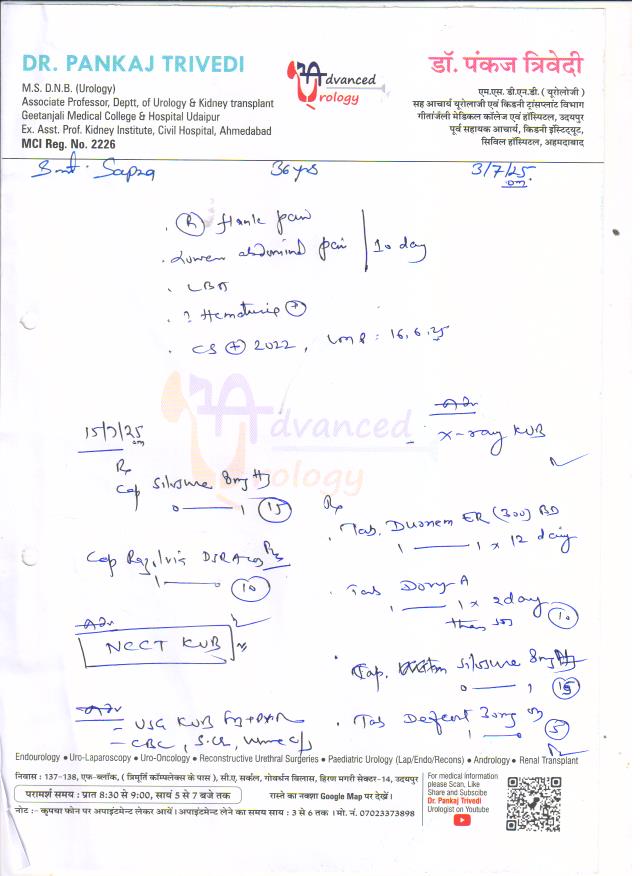 DR. PANKAJ TRIVEDI
M.S. D.N.B. (Urology)
Associate Professor, Deptt. of Urology & Kidney transplant
Geetanjali Medical College & Hospital Udaipur
Ex. Asst. Prof. Kidney Institute, Civil Hospital, Ahmedabad
MCI Reg. No. 2226
Advanced
Urology
डॉ. पंकज त्रिवेदी
एम.एस. डी.एन.बी. ( यूरोलोजी )
सह आचार्य यूरोलाजी एवं किडनी ट्रांसप्लांट विभाग
गीतांजली मेडिकल कॉलेज एवं हॉस्पिटल, उदयपुर
पूर्व सहायक आचार्य, किडनी इंस्टिट्यूट,
सिविल हॉस्पिटल, अहमदाबाद
36 yrs
3/7/25
(R) flank pain
Lower abdominal pain 10 day
? Hematuria (+)
CS (+) 2022, LMP : 16.6.25
Advanced
Urology
Adv
X-ray KUB
15/7/25
Rx
Cap 8mg
0 — 1 (15)
Cap DSR
1 — (10)
Adv
NCCT KUB
Adv
- USG KUB
- CBC, S.Cr, Urine C/s
Rx
Tab. ER (300) BD
1 — 1 x 12 day
Tab A
1 — 1 x 2 day
then sos (10)
Cap. 8mg
0 — 1 (15)
Tab 30mg
1 — (5)
Endourology • Uro-Laparoscopy • Uro-Oncology • Reconstructive Urethral Surgeries • Paediatric Urology (Lap/Endo/Recons) • Andrology • Renal Transplant
निवास : 137-138, एफ-ब्लॉक, ( त्रिमूर्ति कॉम्पलेक्स के पास ), सी.ए. सर्कल, गोवर्धन विलास, हिरण मगरी सेक्टर-14, उदयपुर
परामर्श समय : प्रात 8:30 से 9:00, सायं 5 से 7 बजे तक
रास्ते का नक्शा Google Map पर देखें।
नोट :- कृपया फोन पर अपाइंटमेन्ट लेकर आयें। अपाइंटमेन्ट लेने का समय सायं : 3 से 6 तक । मो. नं. 07023373898
For medical information
please Scan, Like
Share and Subscibe
Dr. Pankaj Trivedi
Urologist on Youtube